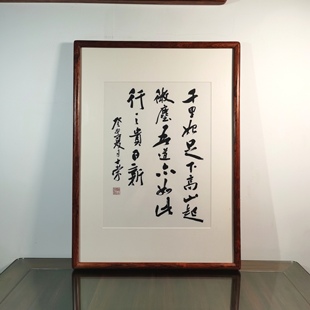 千里始足下高山起
微塵吾道亦如此
行之貴日新
夏